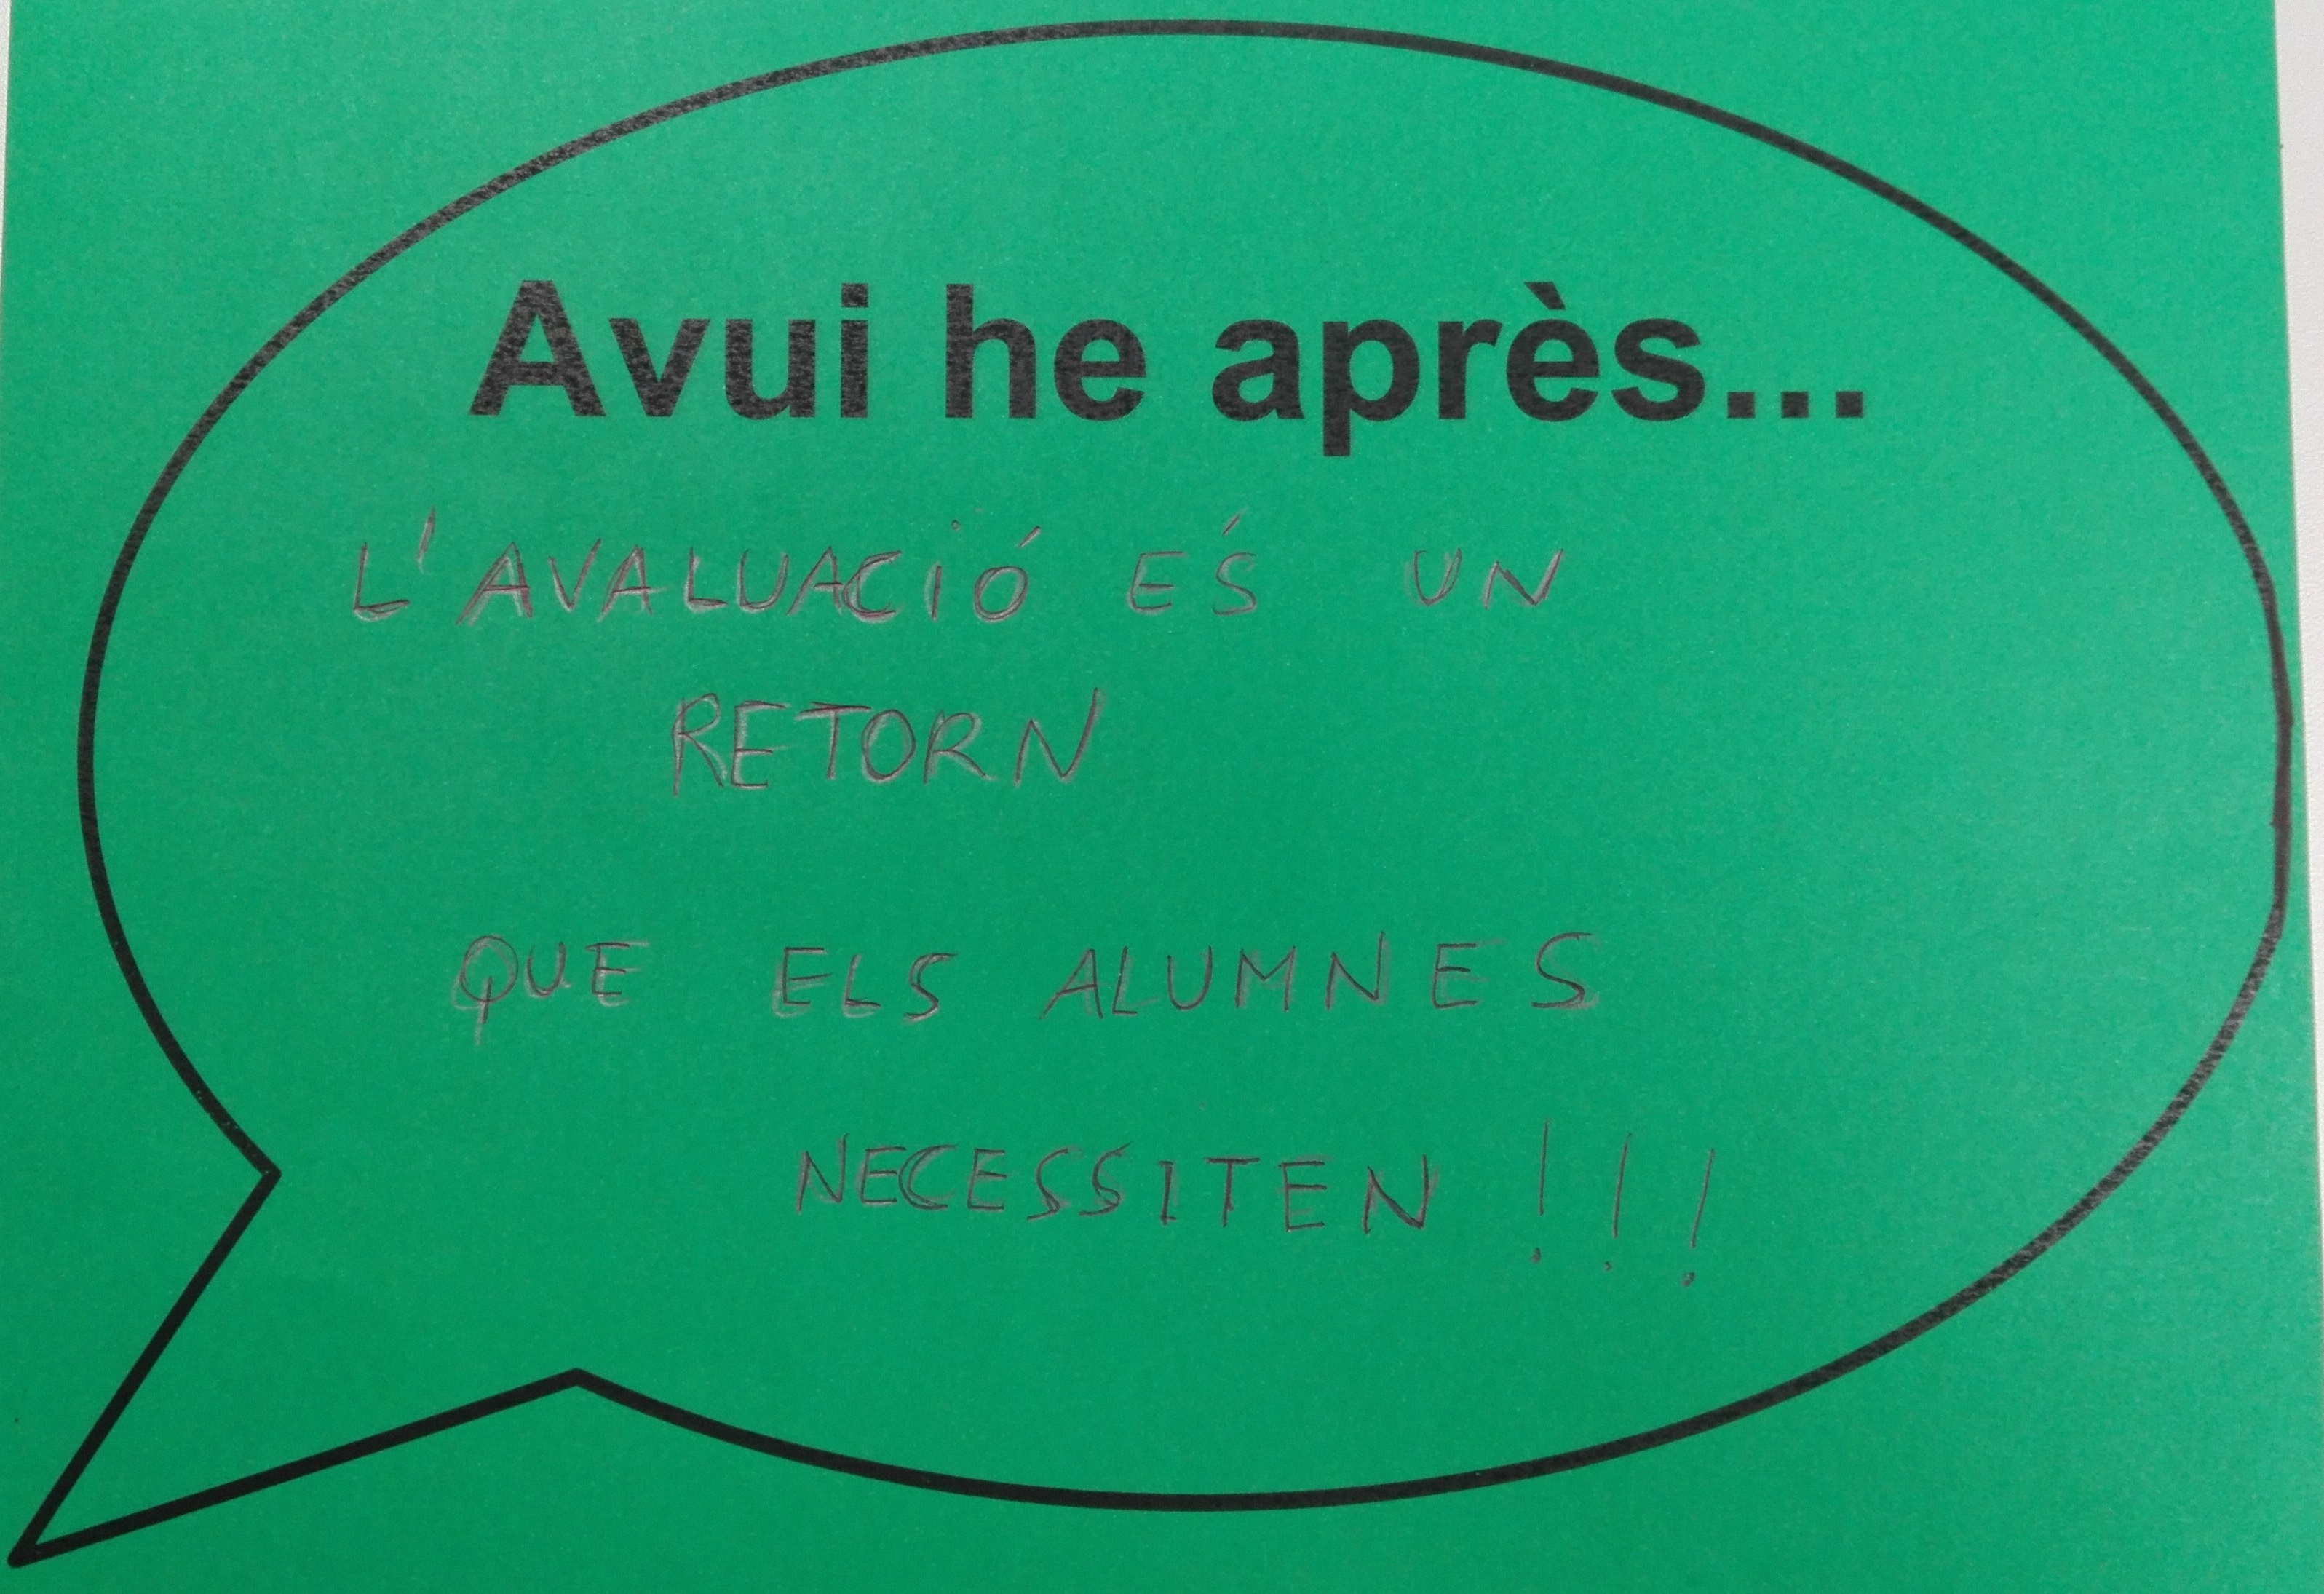 Avui he après...
L'AVALUACIÓ ÉS UN
RETORN
QUE ELS ALUMNES
NECESSITEN !!!